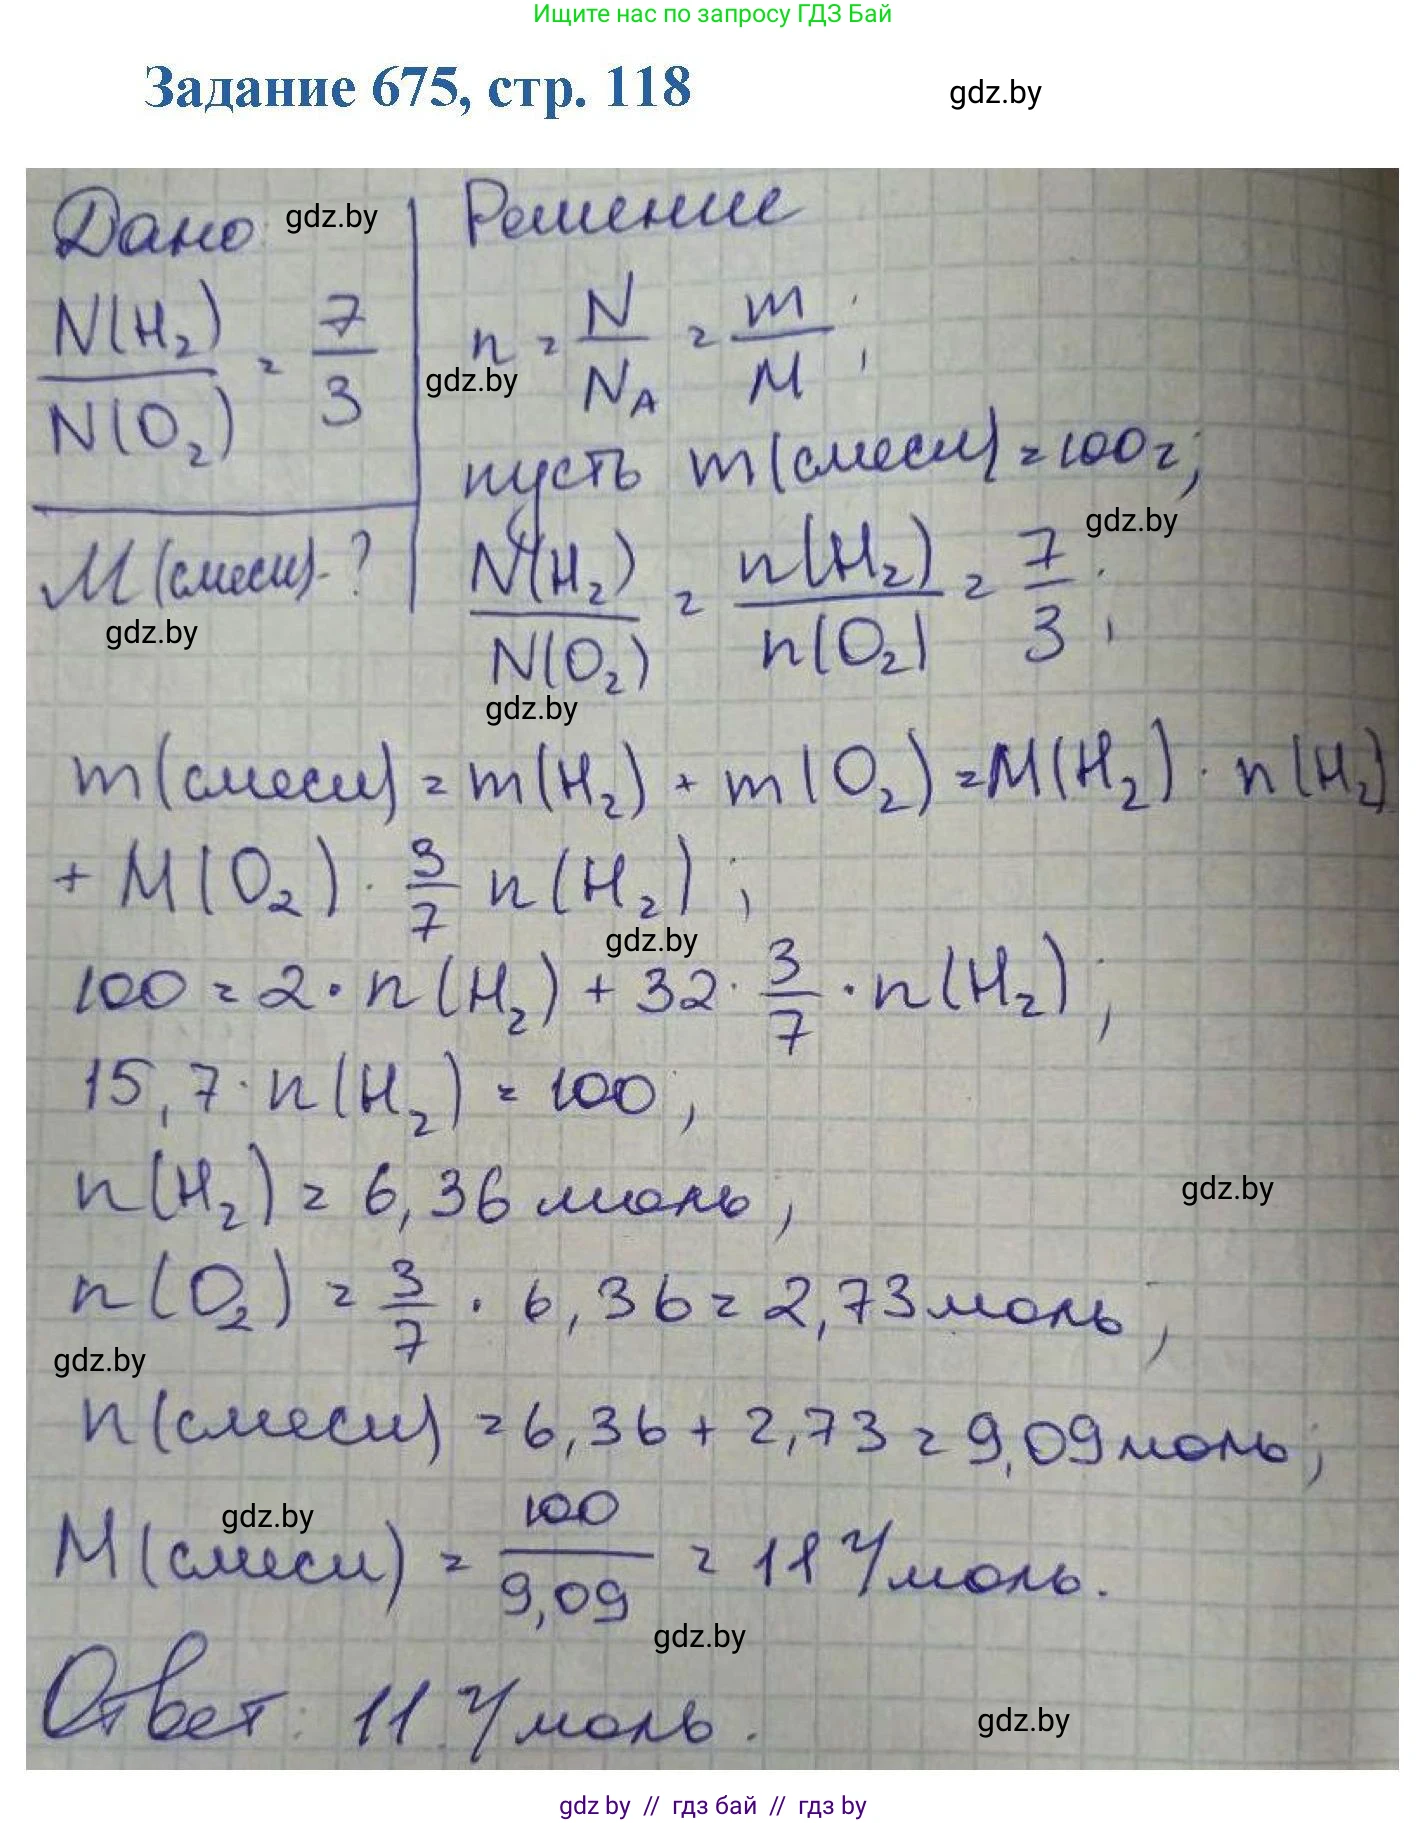 Ищите нас по запросу ГДЗ Бай
Задание 675, стр. 118
gdz.by
Дано
gdz.by
Решение
N(H₂)/N(O₂) = 7/3
n = N/N_A = m/M;
gdz.by
пусть m(смеси) = 100г;
gdz.by
M(смеси) - ?
N(H₂)/N(O₂) = n(H₂)/n(O₂) = 7/3;
gdz.by
gdz.by
m(смеси) = m(H₂) + m(O₂) = M(H₂) · n(H₂)
+ M(O₂) · 3/7 n(H₂);
gdz.by
100 = 2 · n(H₂) + 32 · 3/7 · n(H₂);
15,7 · n(H₂) = 100;
n(H₂) = 6,36 моль,
gdz.by
n(O₂) = 3/7 · 6,36 = 2,73 моль,
gdz.by
n(смеси) = 6,36 + 2,73 = 9,09 моль;
gdz.by
M(смеси) = 100/9,09 = 11 г/моль.
gdz.by
Ответ: 11 г/моль.
gdz.by
gdz by // гдз бай // гдз by